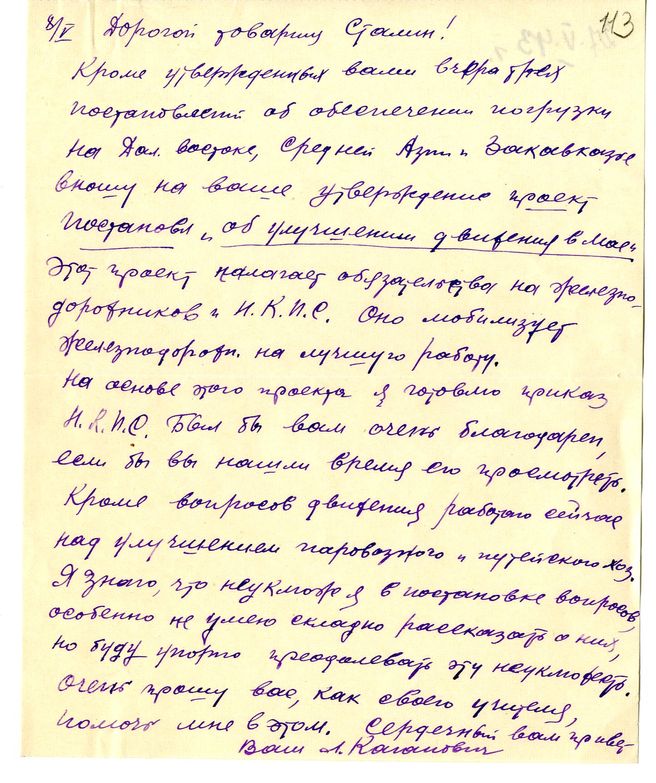 8/V Дорогой товарищ Сталин! 113
Кроме утвержденных вами вчера трех
постановлений об обеспечении погрузки
на Дал. востоке, Средней Азии и Закавказье
вношу на ваше утверждение проект
постановл „об улучшении движения в мае"
Этот проект налагает обязательства на железно-
дорожников и Н.К.П.С. Оно мобилизует
железнодорожн. на лучшую работу.
На основе этого проекта я готовлю приказ
Н.К.П.С. Был бы вам очень благодарен,
если бы вы нашли время его просмотреть.
Кроме вопросов движения работаю сейчас
над улучшением паровозного и путейского хоз.
Я знаю, что неуклюж я в постановке вопросов,
особенно не умею складно рассказать о них,
но буду упорно преодолевать эту неуклюжесть.
Очень прошу вас, как своего учителя,
помочь мне в этом. Сердечный вам привет
Ваш Л. Каганович